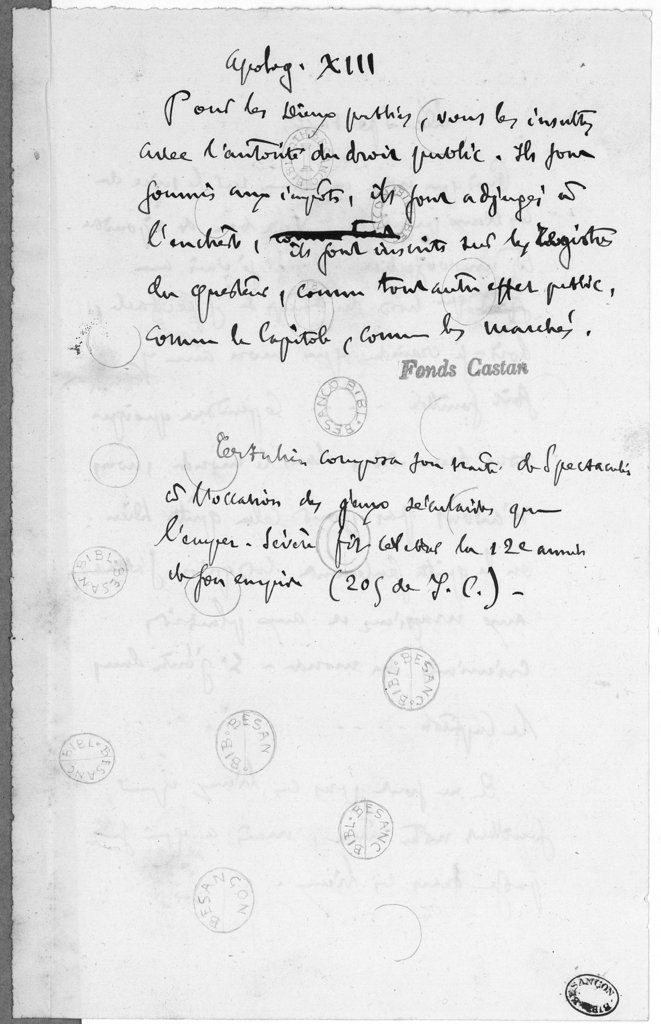 Apolog. XIII
Pour les Dieux publics, vous les insultez
avec l'autorité du droit public. Ils sont
soumis aux impôts, ils sont adjugés à
l'enchère, ils sont inscrits sur les Registres
du questeur, comme tout autre effet public,
comme le Capitole, comme les marchés.
Fonds Castan
Tertulien composa son traité de Spectaculis
à l'occasion des jeux séculaires que
l'emper. Sévère fit célébrer la 12e année
de son empire (205 de J. C.) _
BESANCO BIBL.
BESAN BIBL.
BIBL. BESANC
BIB. BESAN
BESANC BIBL.
BIBL. BESANC
BESANÇON
BESANÇON BIBL.